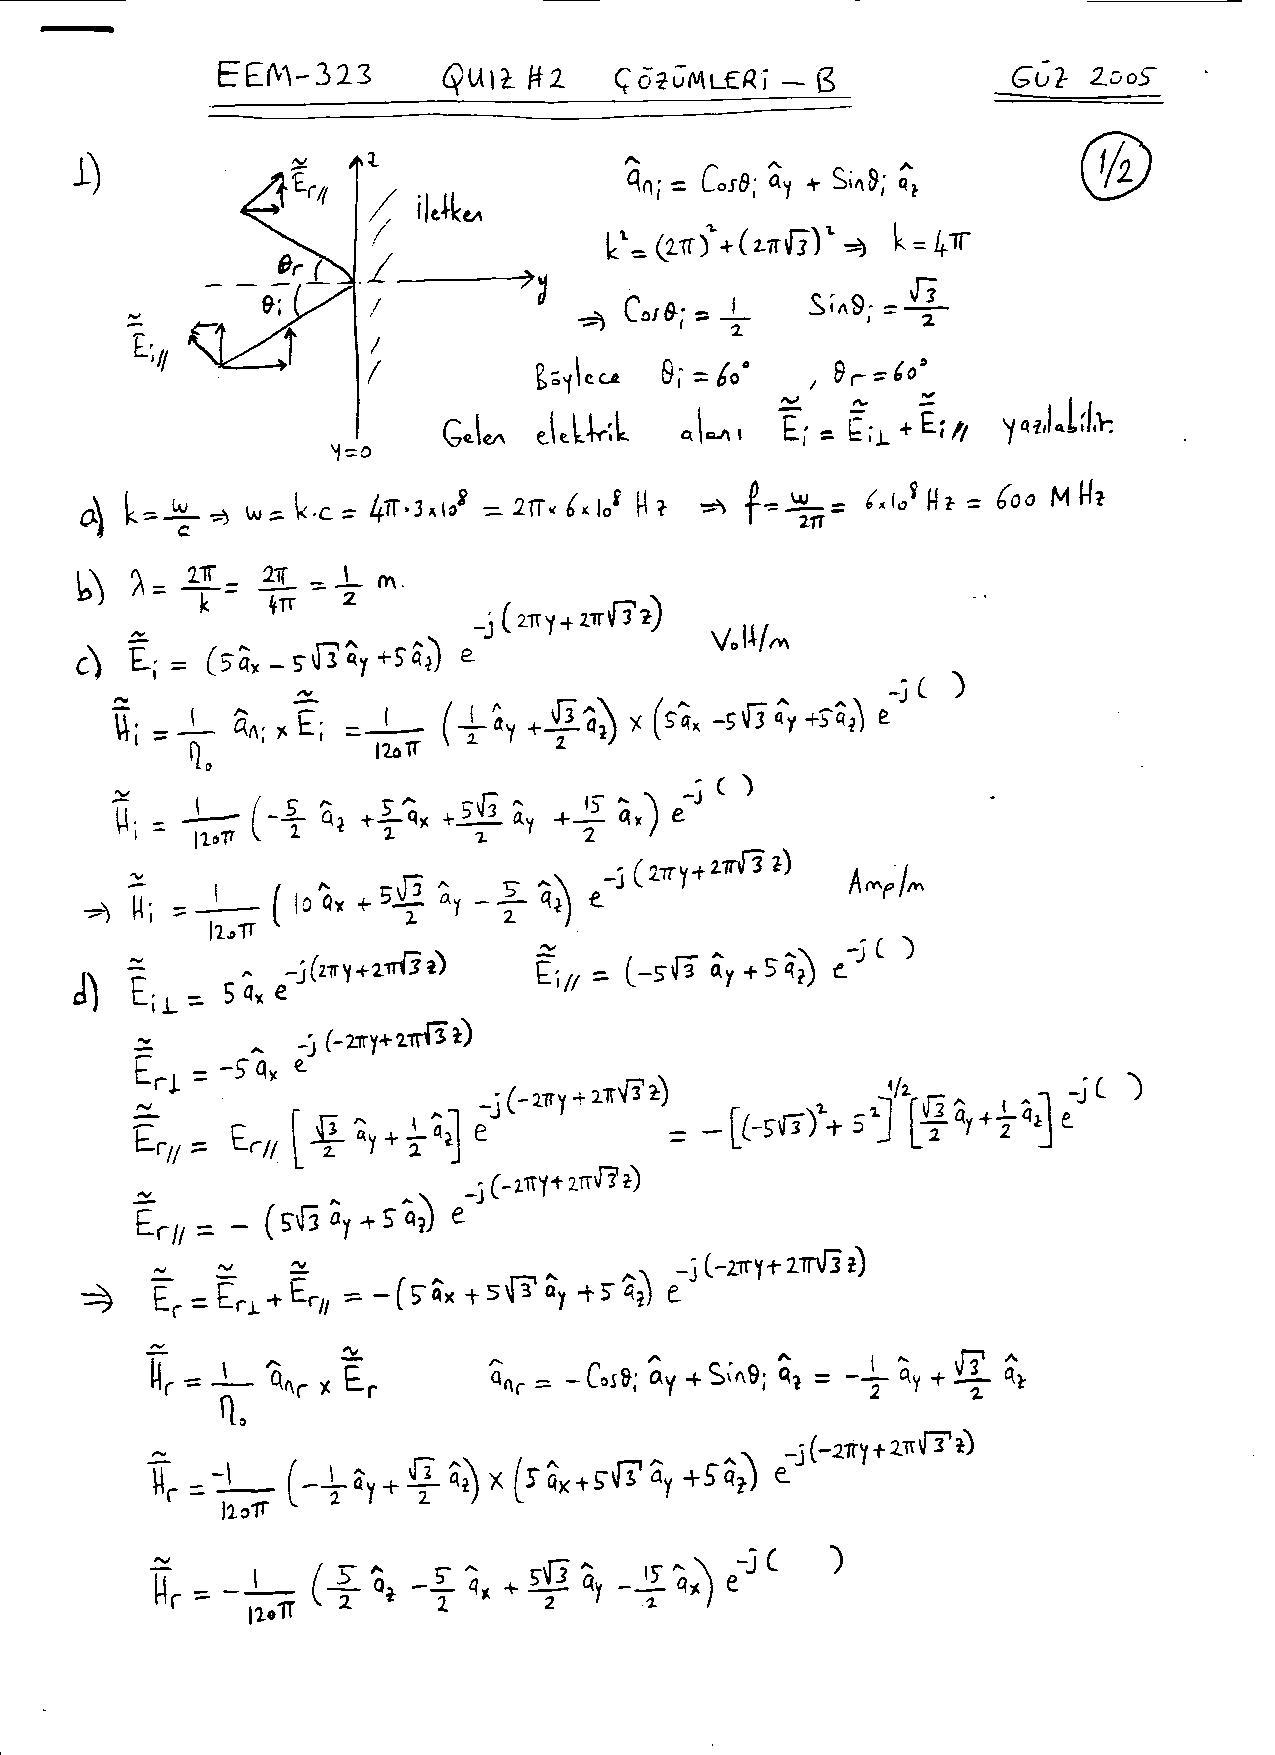 EEM-323 QUIZ #2 ÇÖZÜMLERİ - B GÜZ 2005
1/2
1)
z
Ẽr//
iletken
θr
y
θi
Ẽi//
y=0
âni = Cosθi ây + Sinθi âz
k² = (2π)² + (2π√3)² ⇒ k = 4π
⇒ Cosθi = 1/2 Sinθi = √3/2
Böylece θi = 60° , θr = 60°
Gelen elektrik alanı Ẽi = Ẽi⊥ + Ẽi// yazılabilir.
a) k = w/c ⇒ w = k.c = 4π.3x10⁸ = 2π x 6x10⁸ Hz ⇒ f = w/2π = 6x10⁸ Hz = 600 MHz
b) λ = 2π/k = 2π/4π = 1/2 m.
c) Ẽi = (5âx - 5√3 ây + 5âz) e^-j(2πy + 2π√3 z) Volt/m
H̃i = 1/η₀ âni x Ẽi = 1/120π (1/2 ây + √3/2 âz) x (5âx - 5√3 ây + 5âz) e^-j( )
H̃i = 1/120π (-5/2 âz + 5/2 âx + 5√3/2 ây + 15/2 âx) e^-j( )
⇒ H̃i = 1/120π (10 âx + 5√3/2 ây - 5/2 âz) e^-j(2πy + 2π√3 z) Amp/m
d) Ẽi⊥ = 5 âx e^-j(2πy + 2π√3 z) Ẽi// = (-5√3 ây + 5 âz) e^-j( )
Ẽr⊥ = -5 âx e^-j(-2πy + 2π√3 z)
Ẽr// = Er// [√3/2 ây + 1/2 âz] e^-j(-2πy + 2π√3 z) = - [(-5√3)² + 5²]^1/2 [√3/2 ây + 1/2 âz] e^-j( )
Ẽr// = - (5√3 ây + 5 âz) e^-j(-2πy + 2π√3 z)
⇒ Ẽr = Ẽr⊥ + Ẽr// = -(5 âx + 5√3 ây + 5 âz) e^-j(-2πy + 2π√3 z)
H̃r = 1/η₀ ânr x Ẽr ânr = -Cosθi ây + Sinθi âz = -1/2 ây + √3/2 âz
H̃r = -1/120π (-1/2 ây + √3/2 âz) x (5 âx + 5√3 ây + 5 âz) e^-j(-2πy + 2π√3 z)
H̃r = -1/120π (5/2 âz - 5/2 âx + 5√3/2 ây - 15/2 âx) e^-j( )